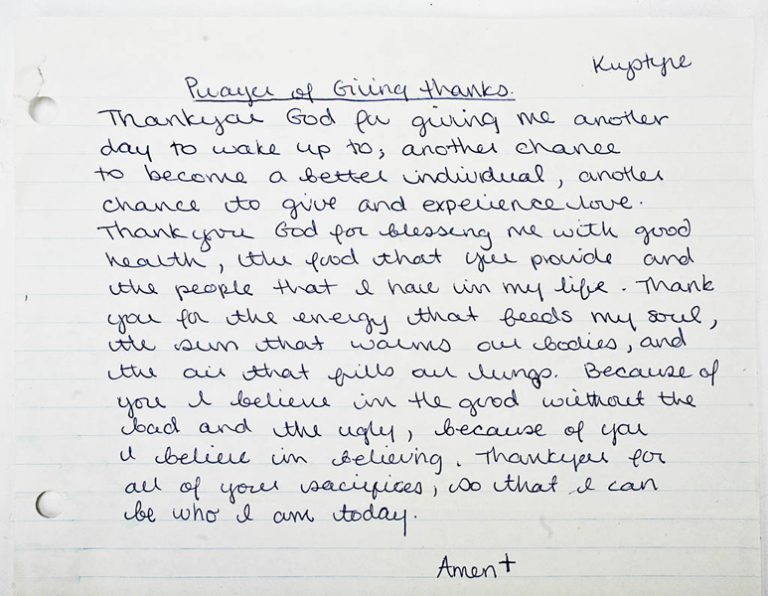 Kryptyre
Prayer of Giving thanks.
Thankyou God for giving me another
day to wake up to; another chance
to become a better individual, another
chance to give and experience love.
Thank you God for blessing me with good
health, the food that you provide and
the people that I have in my life. Thank
you for the energy that feeds my soul,
the sun that warms our bodies, and
the air that fills our lungs. Because of
you I believe in the good without the
bad and the ugly, because of you
I believe in believing. Thankyou for
all of your sacrifices, so that I can
be who I am today.
Amen †